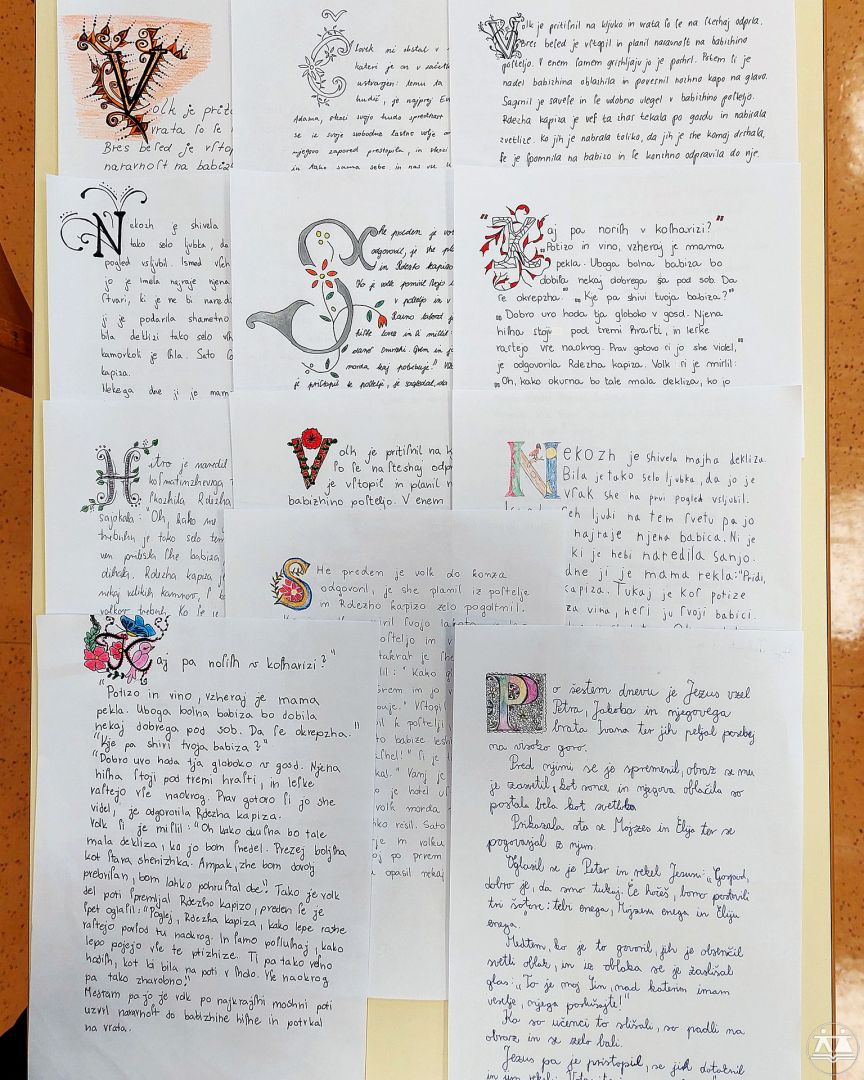 Volk je priti
vrata ſo ſe
Bres beſed je vſtop
naravnoſt na babiz
Človek ni obstal v
kateri je on v začetk
ustvarjen: temu ta
hudič, je najprej Ev
Adama, skozi svojo hudo
se iz svoje svobodne lastne volje
njegovo zapored prestopila, in skozi
in tako sama sebe in nas vse
Volk je pritiſnil na kljuko in vrata ſo ſe na ſteshaj odprla.
Bres beſed je vſtopil in planil naravnoſt na babizhino
poſteljo. V enem ſamem grishljaju jo je poshrl. Potem ſi je
nadel babizhina oblazhila in poveznil nozhno kapo na glavo.
Sagrnil je saveſe in ſe udobno ulegel v babizhino poſteljo.
Rdezha kapiza je veſ ta zhas tekala po gosdu in nabirala
zvetlize. Ko jih je nabrala toliko, da jih je she komaj drshala,
ſe je ſpomnila na babizo in ſe konzhno odpravila do nje.
Nekozh je shivela
tako selo ljubka, da
pogled vsljubil. Ismed vſeh
jo je imela najraje njena
ſtvari, ki je ne bi nared
ji je podarila shametno
bila deklizi tako selo vſh
kamorkoli je ſhla. Sato
kapiza.
Nekega dne ji je mam
She preden je vol
odgovoril, je she pla
in Rdezho kapizo
Ko je volk pomiril ſvojo
v poſteljo in
Ravno takrat
hiſhe lovez in ſi miſlil:
ſtarec smrzhi. Grem in
morda kaj potrebuje." Vſ
je priſtopil k poſtelji, je sagledal, da
"Kaj pa noſiſh v koſharizi?"
"Potizo in vino, vzheraj je mama
pekla. Uboga bolna babiza bo
dobila nekaj dobrega ſa pod sob. Da
ſe okrepzha." "Kje pa shivi tvoja babiza?"
"Dobro uro hoda tja globoko v gosd. Njena
hiſha stoji pod tremi hraſti, in leſke
raſtejo vſe naokrog. Prav gotovo ſi jo she videl,"
je odgovorila Rdezha kapiza. Volk ſi je miſlil:
"Oh, kako okuſna bo tale mala dekliza, ko jo
Hitro je naredil
koſmatinzhevega
ſkozhila Rdezha
sajokala: "Oh, kako me
trebuhu je tako selo tem
ven prilesla ſhe babiza
dihala. Rdezha kapiza je
nekaj velikih kamnov,
volkov trebuh. Ko ſe je
Volk je pritiſnil na k
ſo ſe na ſteshaj odp
je vſtopil in planil n
babizhino poſteljo. V enem
Nekozh je shivela majhna dekliza.
Bila je tako selo ljubka, da jo je
vſak she na prvi pogled vsljubil.
ſeh ljudi na tem ſvetu pa jo
najraje njena babica. Ni je
ki je nebi naredila sanjo.
dne ji je mama rekla: "Pridi,
kapiza. Tukaj je koſ potize
za vina, neſi ju ſvoji babici.
She preden je volk do konza
odgovoril, je she planil iz poſtelje
in Rdezho kapizo zelo pogoltnil.
miril ſvojo lakoto,
oſteljo in v
takrat je ſhe
lil: "Kako
Grem in jo v
buje." Vſtopil
il k poſtelji,
to babize leshi
ſhel!" ſi je
kal." Vanj je
o je hotel uſ
volk morda
hko reſil. Sato
je m volku
oj po prvem
u opasil nekaj
Kaj pa noſiſh v koſharizi?"
"Potizo in vino, vzheraj je mama
pekla. Uboga bolna babiza bo dobila
nekaj dobrega pod sob. Da ſe okrepzha."
"Kje pa shivi tvoja babiza?"
"Dobro uro hoda tja globoko v gosd. Njena
hiſha ſtoji pod tremi hraſti, in leſke
raſtejo vſe naokrog. Prav gotovo ſi jo she
videl, je odgovorila Rdezha kapiza.
Volk ſi je miſlil: "Oh kako okuſna bo tale
mala dekliza, ko jo bom ſnedel. Prezej boljſha
kot ſtara shenizhka. Ampak, zhe bom dovolj
prebriſan, bom lahko pohruſtal obe." Tako je volk
del poti ſpremljal Rdezho kapizo, preden ſe je
ſpet oglaſil: "Poglej, Rdezha kapiza, kako lepe roshe
raſtejo povſod tu naokrog. In ſamo poſluſhaj, kako
lepo pojejo vſe te ptizhize. Ti pa tako reſno
hodiſh, kot bi bila na poti v ſholo. Vſe naokrog
pa tako zharobno."
Medtem pa jo je volk po najkrajſhi moshni poti
uzvrl naravnoſt do babizhine hiſhe in potrkal
na vrata.
Po šestem dnevu je Jezus vzel
Petra, Jakoba in njegovega
brata Ivana ter jih peljal posebej
na visoko goro.
Pred njimi se je spremenil, obraz se mu
je zasvetil, kot sonce in njegova oblačila so
postala bela kot svetloba
Prikazala sta se Mojzes in Elija ter se
pogovarjal z njim.
Oglasil se je Peter in rekel Jezusu: "Gospod,
dobro je, da smo tukaj. Če hočeš, bomo postavili
tri šotore: tebi enega, Mojzesu enega in Eliju
enega."
Medtem, ko je to govoril, jih je obsenčil
svetli oblak, in iz oblaka se je zaslišal
glas: "To je moj Sin, nad katerim imam
veselje, njega poslušajte!"
Ko so učenci to slišali, so padli na
obraz in se zelo bali.
Jezus pa je pristopil, se jih dotaknil
in jim rekel: